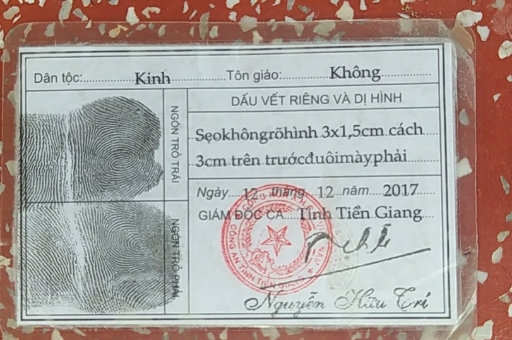 Dân tộc: Kinh Tôn giáo: Không
DẤU VẾT RIÊNG VÀ DỊ HÌNH
Sẹokhôngrõhình 3x1,5cm cách
3cm trên trướcđuôimàyphải
Ngày 12 tháng 12 năm 2017
GIÁM ĐỐC CA Tỉnh Tiền Giang
Nguyễn Hữu Trí
NGÓN TRỎ TRÁI
NGÓN TRỎ PHẢI